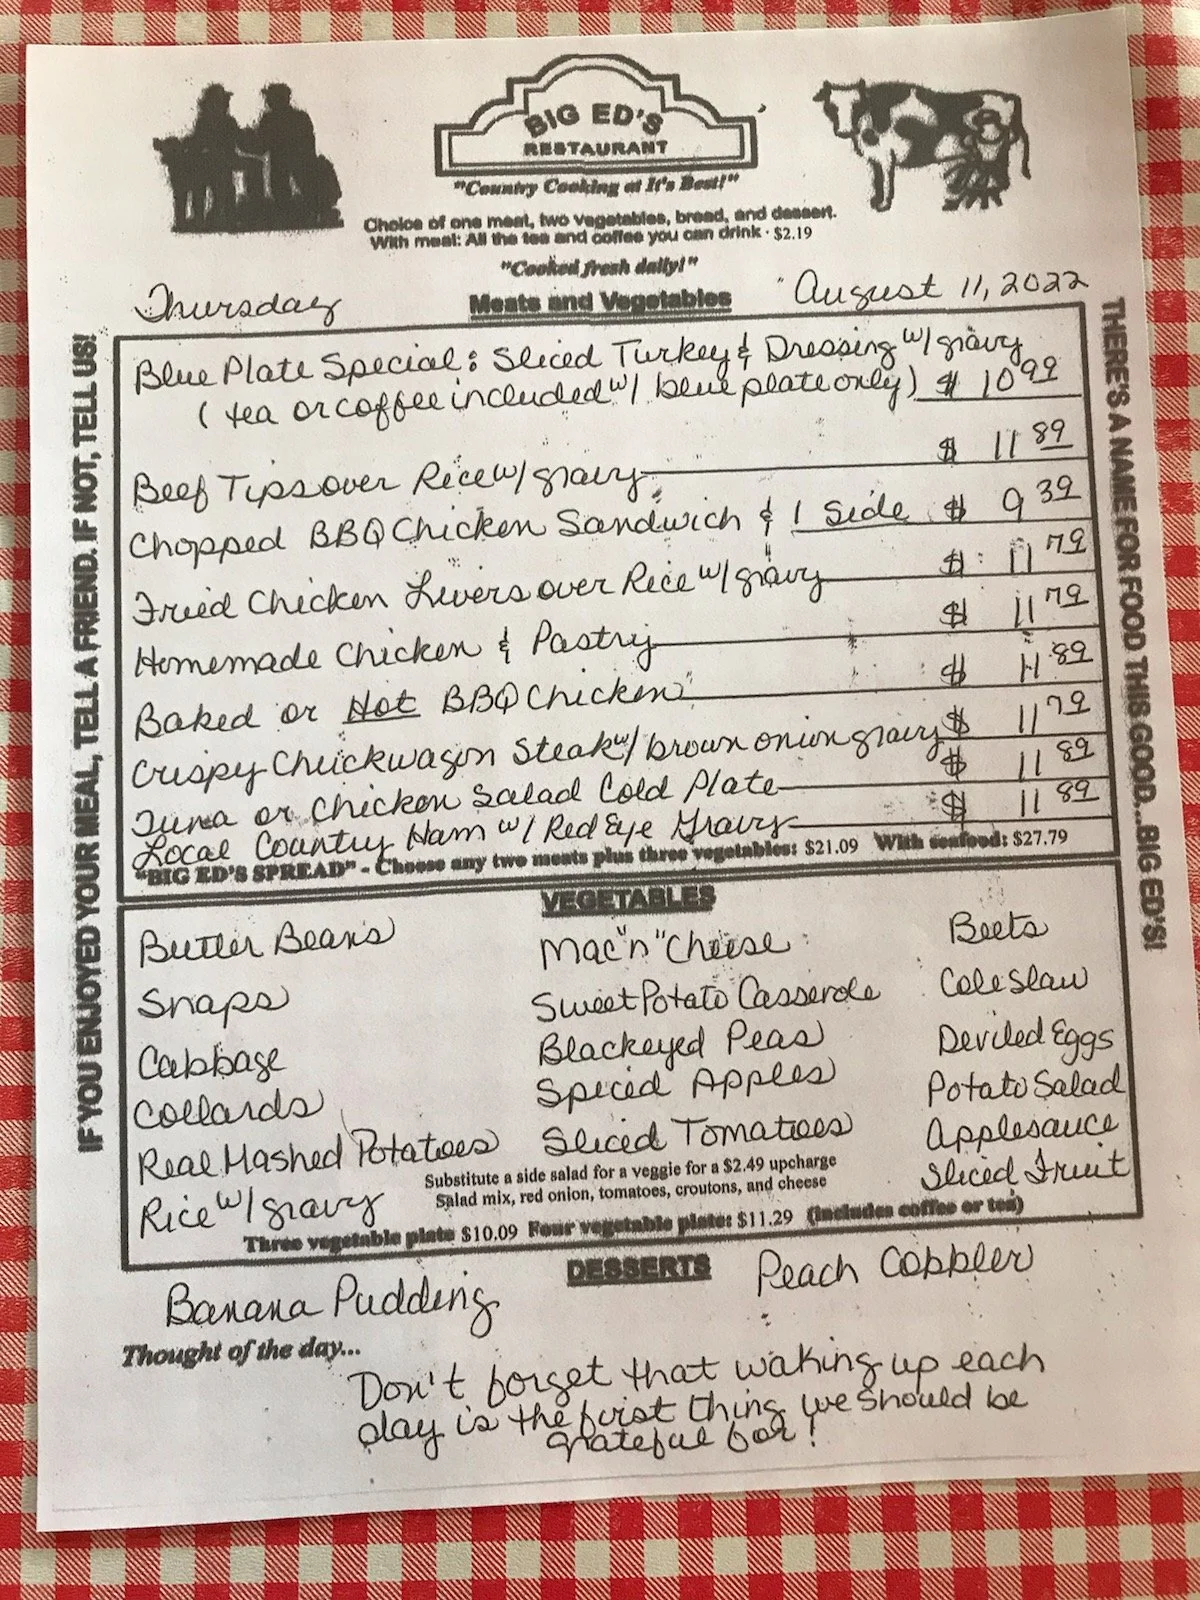 BIG ED'S
RESTAURANT
"Country Cooking at It's Best!"
Choice of one meat, two vegetables, bread, and dessert.
With meal: All the tea and coffee you can drink · $2.19
"Cooked fresh daily!"
Thursday Meats and Vegetables August 11, 2022
IF YOU ENJOYED YOUR MEAL, TELL A FRIEND. IF NOT, TELL US!
THERE'S A NAME FOR FOOD THIS GOOD...BIG ED'S!
Blue Plate Special: Sliced Turkey & Dressing w/ gravy
(tea or coffee included w/ blue plate only) $ 10 99
Beef Tips over Rice w/ gravy $ 11 89
Chopped BBQ Chicken Sandwich & 1 Side $ 9 39
Fried Chicken Livers over Rice w/ gravy $ 11 79
Homemade Chicken & Pastry $ 11 79
Baked or Hot BBQ Chicken $ 11 89
Crispy Chuckwagon Steak w/ brown onion gravy $ 11 79
Tuna or Chicken Salad Cold Plate $ 11 89
Local Country Ham w/ Red Eye Gravy $ 11 89
"BIG ED'S SPREAD" - Choose any two meats plus three vegetables: $21.09 With seafood: $27.79
VEGETABLES
Butter Beans Mac "n" Cheese Beets
Snaps Sweet Potato Casserole Cole Slaw
Cabbage Blackeyed Peas Deviled Eggs
Collards Spiced Apples Potato Salad
Real Mashed Potatoes Sliced Tomatoes Applesauce
Rice w/ gravy Sliced Fruit
Substitute a side salad for a veggie for a $2.49 upcharge
Salad mix, red onion, tomatoes, croutons, and cheese
Three vegetable plate $10.09 Four vegetable plate: $11.29 (includes coffee or tea)
DESSERTS
Banana Pudding Peach Cobbler
Thought of the day...
Don't forget that waking up each
day is the first thing we should be
grateful for!